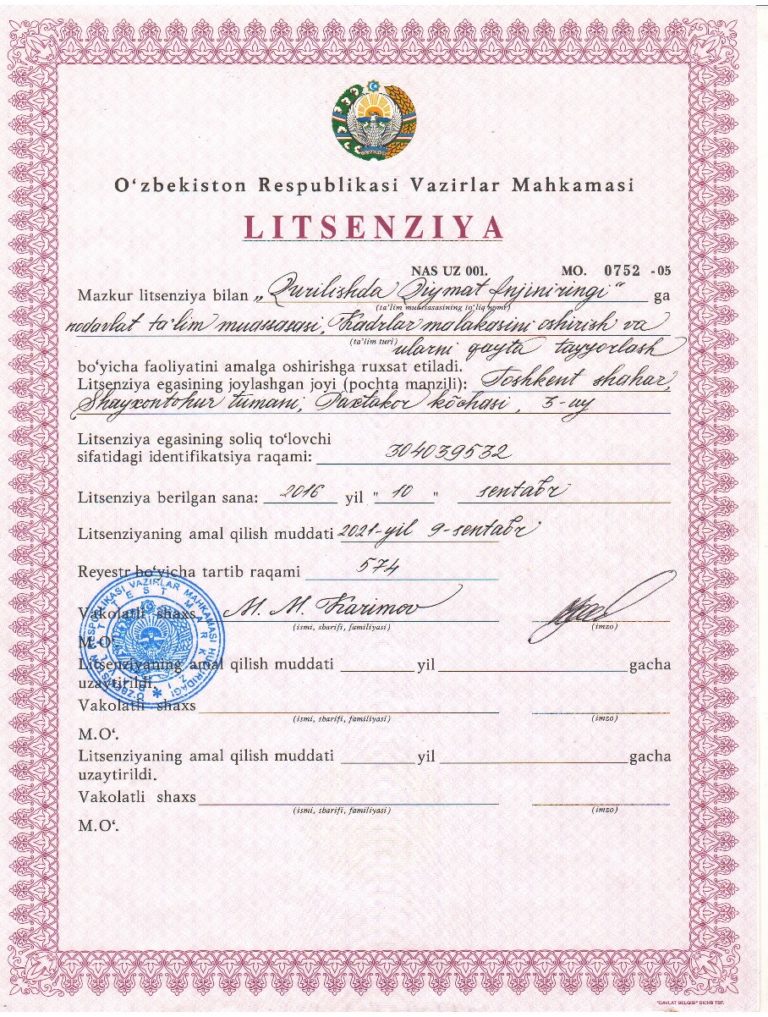 O‘zbekiston Respublikasi Vazirlar Mahkamasi
LITSENZIYA
NAS UZ 001. MO. 0752 -05
Mazkur litsenziya bilan „Qurilishda Qiymat Injiniringi“ ga
(ta'lim muassasasining to'liq nomi)
nodavlat ta'lim muassasasi, Kadrlar malakasini oshirish va
(ta'lim turi) ularni qayta tayyorlash
bo‘yicha faoliyatini amalga oshirishga ruxsat etiladi.
Litsenziya egasining joylashgan joyi (pochta manzili): Toshkent shahar,
Shayxontohur tumani, Paxtakor ko'chasi, 3-uy
Litsenziya egasining soliq to‘lovchi
sifatidagi identifikatsiya raqami: 304039532
Litsenziya berilgan sana: 2016 yil " 10 " sentabr
Litsenziyaning amal qilish muddati 2021-yil 9-sentabr
Reyestr bo‘yicha tartib raqami 574
Vakolatli shaxs M. M. Karimov
(ismi, sharifi, familiyasi) (imzo)
M.O‘.
Litsenziyaning amal qilish muddati yil gacha
uzaytirildi.
Vakolatli shaxs
(ismi, sharifi, familiyasi) (imzo)
M.O‘.
Litsenziyaning amal qilish muddati yil gacha
uzaytirildi.
Vakolatli shaxs
(ismi, sharifi, familiyasi) (imzo)
M.O‘.
VAZIRLAR MAHKAMASI HUZURIDAGI
TEST MARKAZI
"DAVLAT BELGISI"